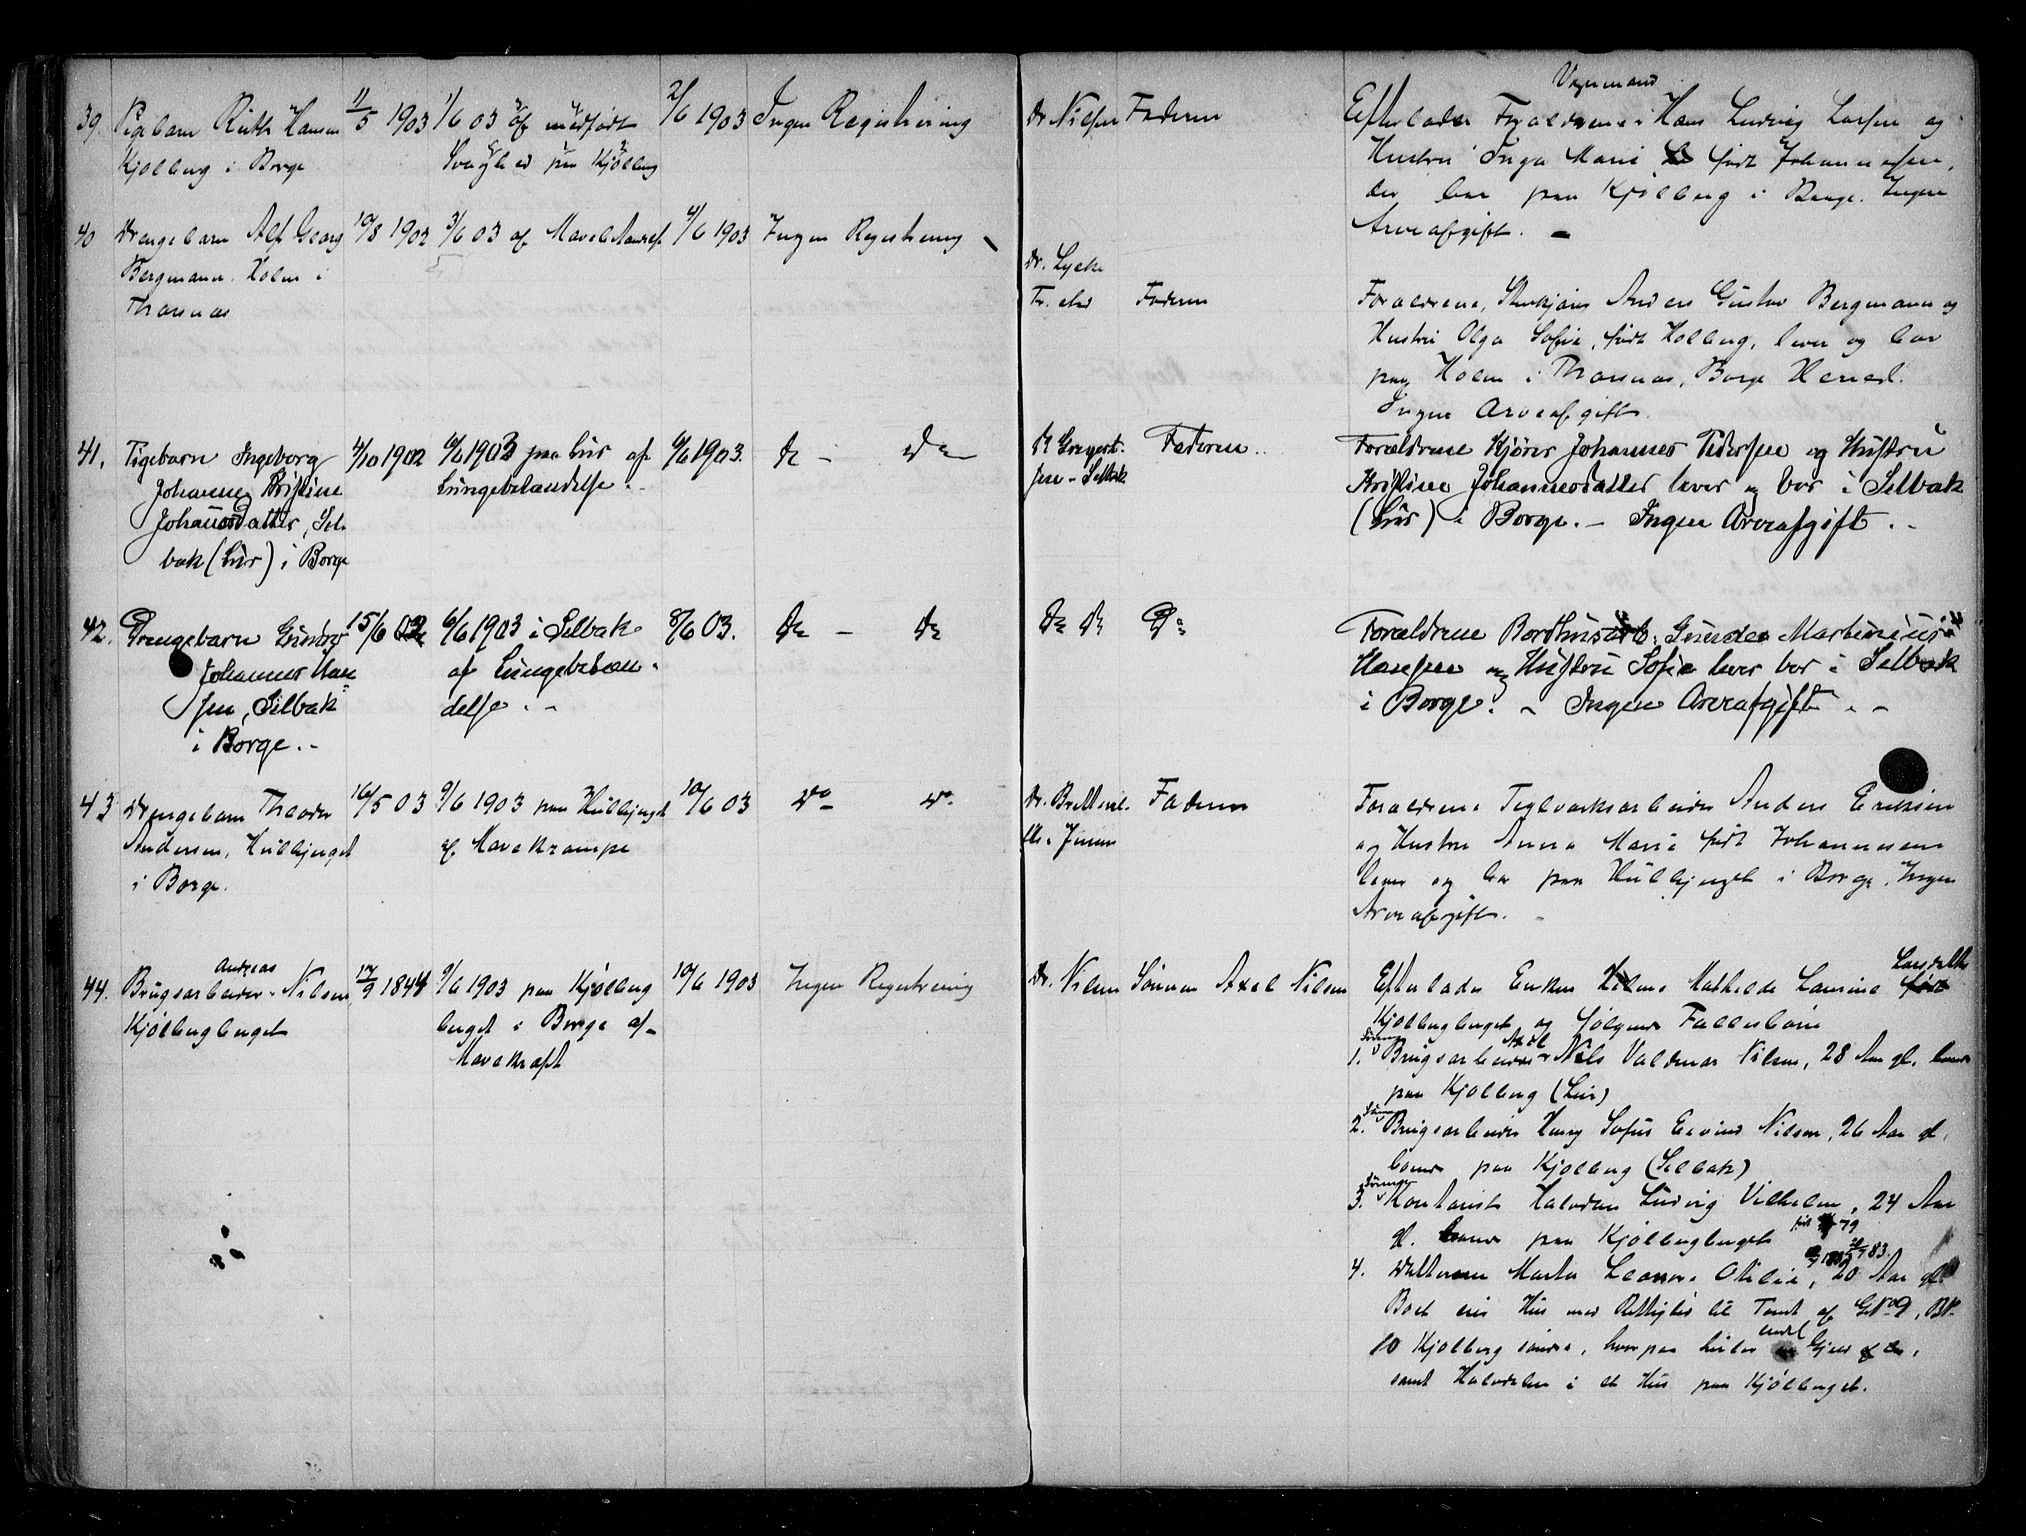 39. Pigebarn Ruth Hansen 11/5 1903 1/6 03 af medfødt 2/6 1903 Ingen Registrering
Kjølberg i Borge Svaghed paa Kjølberg
Dr Nilsen Faderen Efterlader Forældrene Hans Ludvig Larsen og
Hustru Inga Marie født Johannessen,
der bor paa Kjølberg i Borge. Ingen
Arveafgift. -
40 Drengebarn Alf Georg 10/8 1902 3/6 03 af 4/6 1903 Ingen Registrering
Bergmann. Holm i
Thorsnæs
Dr. Lycke
Fr.stad Faderen Forældrene, Anders Gustav Bergmann og
Hustru Olga Sofie, født Holberg, lever og bor
paa Holm i Thorsnæs, Borge Herred.
Ingen Arveafgift.
41. Pigebarn Ingeborg 4/10 1902 6/6 1903 paa Lur af 6/6 1903. Do - Do
Johanne Kristine Lungebetændelse. -
Johansdatter, Sel-
bak (Lur) i Borge
Dr Gregert-
sen - Selbak Faderen. Forældrene Kjører Johannes Pedersen og Hustru
Kristine Johannesdatter lever og bor i Selbak
(Lur) i Borge. - Ingen Arveafgift. -
42. Drengebarn 15/6 02 6/6 1903 i Selbak 8/6 03. Do - Do
Johannes Han- af Lungebetæn-
sen, Selbak delse. -
i Borge. -
Do Do Do Forældrene Gunder Martinius
Hansen og Hustru Sofie lever bor i Selbak
i Borge. - Ingen Arveafgift. -
43 Drengebarn Theodor 16/5 03 9/6 1903 paa Hulbjerget 10/6 03 Do Do
Andersen, Hulbjerget af Mavekrampe
i Borge.
Faderen Forældrene Teglverksarbeider Anders Eriksen
og Hustru Anna Marie født Johannesen
lever og bor paa Hulbjerget i Borge. Ingen
Arveafgift. -
Andreas
44. Brugsarbeider Nilsen 17/9 1844 9/6 1903 paa Kjølberg 10/6 1903 Ingen Registrering
Kjølbergberget berget i Borge af
Mavekræft
Dr. Nilsen Sønnen Axel Nilsen Efterlader Enken Mathilde Laurine Larsdatter
Kjølbergberget og følgende Fællesbørn
1. Sønnen Brugsarbeider Axel Nils Valdemar Nilsen, 28 Aar gl. boende
paa Kjølberg (Lur)
2. Brugsarbeider Harry Sofus Eivind Nilsen, 26 Aar gl.
boende paa Kjølberg (Selbak)
3. Sønnen Kontorist Halvdan Ludvig Vilhelm, 24 Aar
gl. boende paa Kjølbergberget
4. Datteren Marta Leonora Otilie, 20 Aar gl.
Boet eier Hus med Rettighed til Tomt af GNo 9, BNo
10 Kjølberg søndre, hvorpaa hviler endel Gjæld,
samt Halvdelen i et Hus paa Kjølberget.